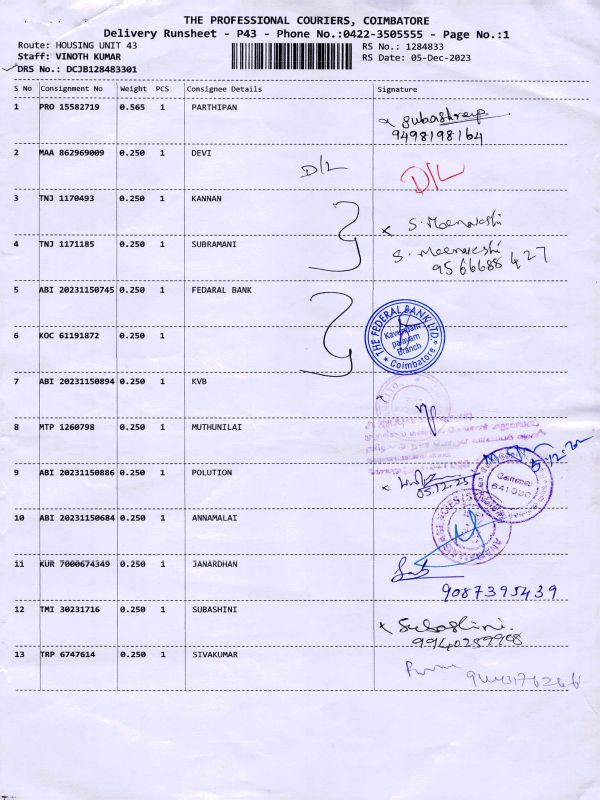 THE PROFESSIONAL COURIERS, COIMBATORE
Delivery Runsheet - P43 - Phone No.:0422-3505555 - Page No.:1
Route: HOUSING UNIT 43 RS No.: 1284833
Staff: VINOTH KUMAR RS Date: 05-Dec-2023
DRS No.: DCJB128483301
S No Consignment No Weight PCS Consignee Details Signature
1 PRO 15582719 0.565 1 PARTHIPAN
9498198164
2 MAA 862969009 0.250 1 DEVI D/L D/L
3 TNJ 1170493 0.250 1 KANNAN S. Meenakshi
4 TNJ 1171185 0.250 1 SUBRAMANI S. Meenakshi
9566688427
5 ABI 20231150745 0.250 1 FEDARAL BANK
THE FEDERAL BANK LTD.
Kavundam
palayam
Branch
Coimbatore
6 KOC 61191872 0.250 1
7 ABI 20231150894 0.250 1 KVB
8 MTP 1260798 0.250 1 MUTHUNILAI
9 ABI 20231150886 0.250 1 POLUTION
கோவை
10 ABI 20231150684 0.250 1 ANNAMALAI
11 KUR 7000674349 0.250 1 JANARDHAN
9087395439
12 TMI 30231716 0.250 1 SUBASHINI Subashini.
13 TRP 6747614 0.250 1 SIVAKUMAR